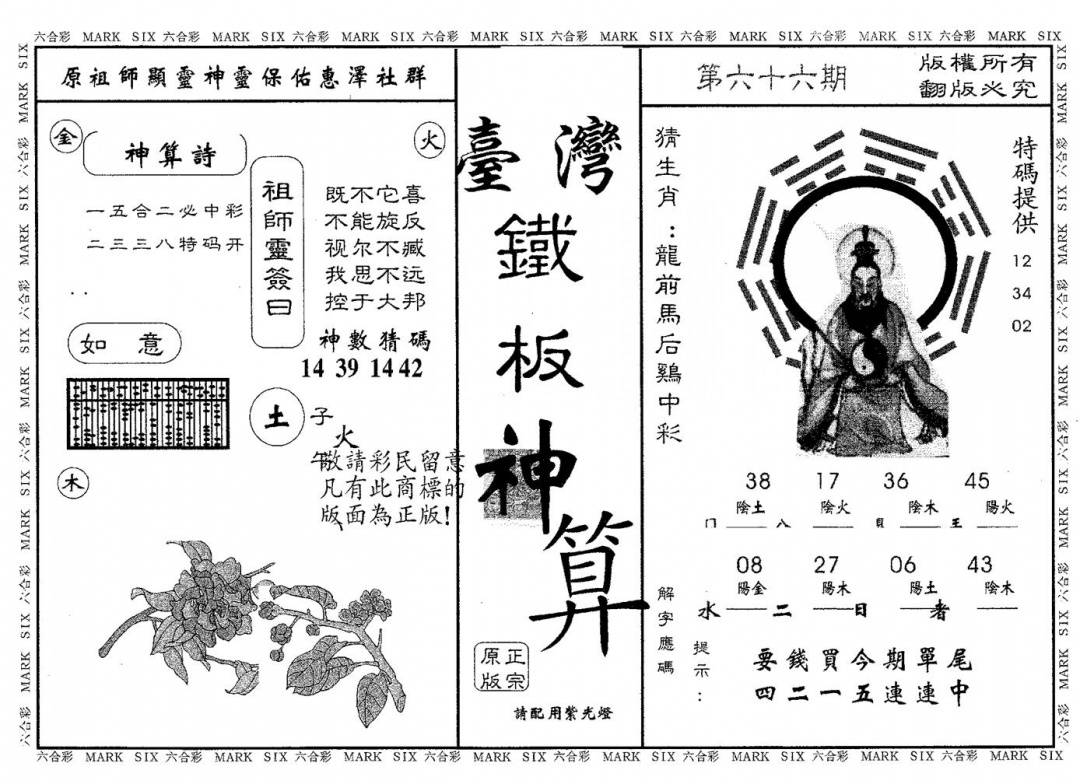 六合彩 MARK SIX 六合彩 MARK SIX 六合彩 MARK SIX 六合彩 MARK SIX 六合彩 MARK SIX 六合彩 MARK SIX 六合彩 MARK SIX 六合彩 MARK SIX
原祖師顯靈神靈保佑惠澤社群
金
神算詩
火
一五合二必中彩
二三三八特码开
祖師靈簽曰
既不它喜
不能旋反
视尔不臧
我思不远
控于大邦
神數猜碼
14 39 14 42
如意
土
子
火
午
木
敬請彩民留意
凡有此商標的
版面為正版!
臺灣
鐵
板
神
算
正宗
原版
請配用紫光燈
第六十六期
版權所有
翻版必究
猜生肖:龍前馬后鷄中彩
特碼提供
12
34
02
38 17 36 45
陰土 陰火 陰木 陽火
八 王
08 27 06 43
陽金 陽木 陽土 陰木
水 二 日 者
解字應碼
提示:
要錢買今期單尾
四二一五連連中
六合彩 MARK SIX 六合彩 MARK SIX 六合彩 MARK SIX 六合彩 MARK SIX 六合彩 MARK SIX 六合彩 MARK SIX 六合彩 MARK SIX 六合彩 MARK SIX